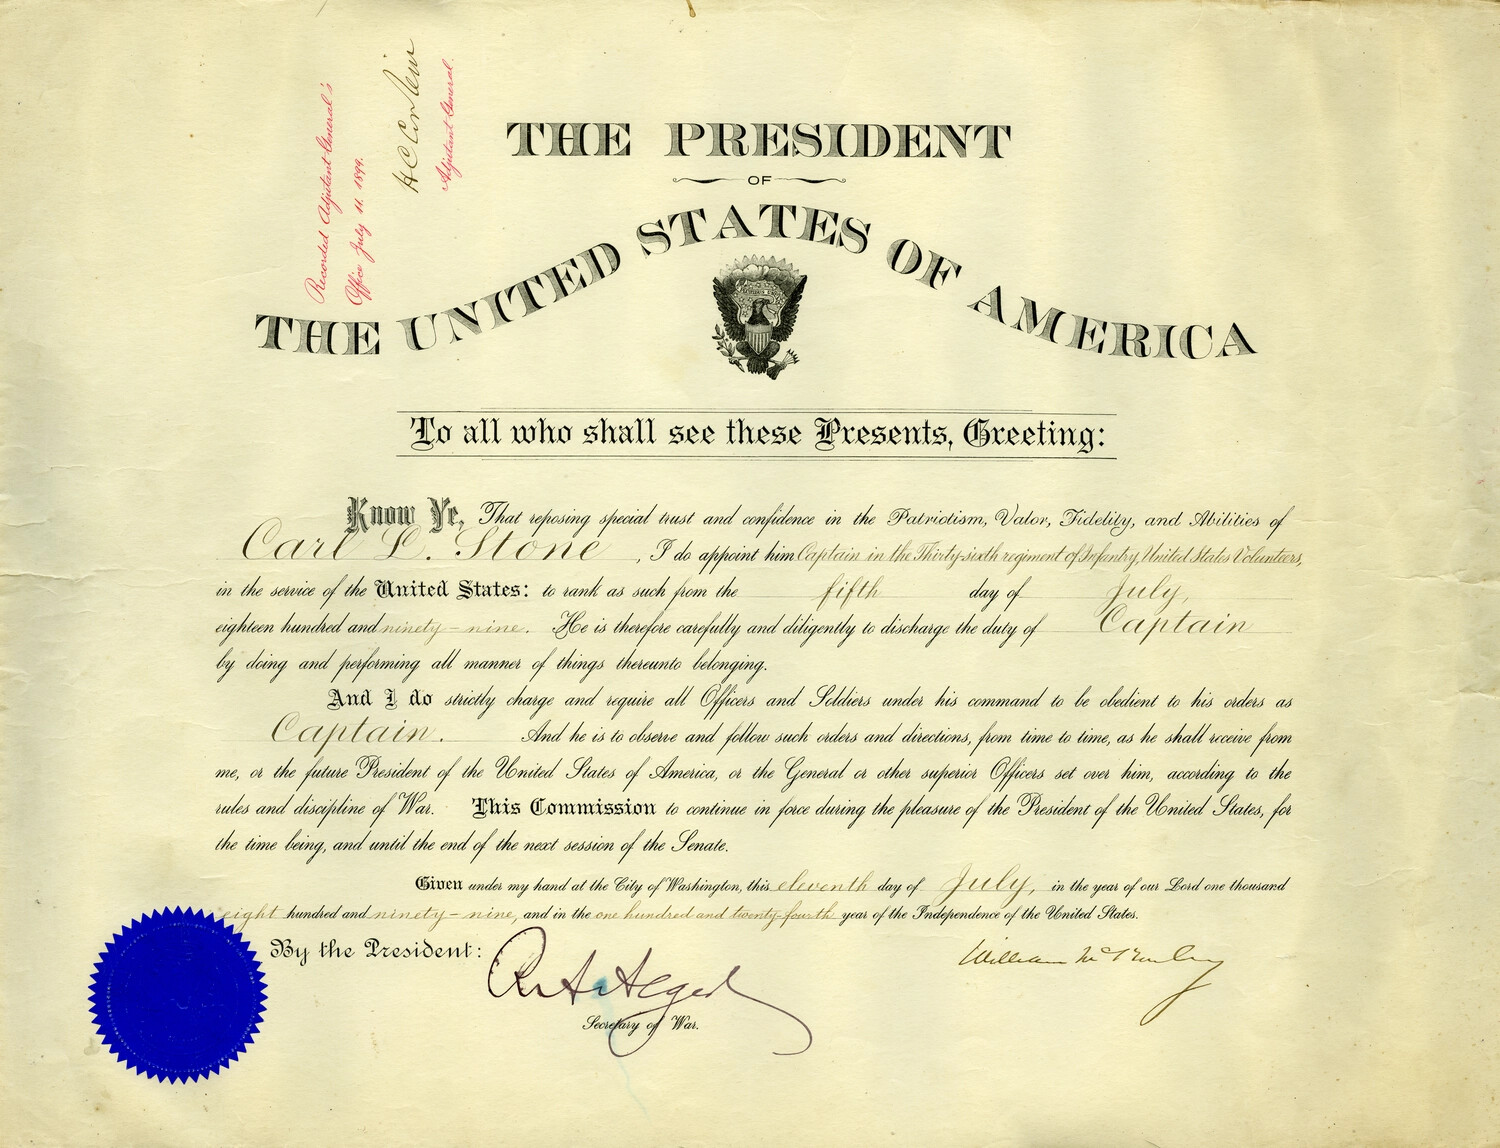 Recorded Adjutant General's
Office July 11. 1899.
H C Corbin
Adjutant General.
THE PRESIDENT
OF
THE UNITED STATES OF AMERICA
To all who shall see these Presents, Greeting:
Know Ye, That reposing special trust and confidence in the Patriotism, Valor, Fidelity, and Abilities of
Carl L. Stone, I do appoint him Captain in the Thirty-sixth regiment of Infantry, United States Volunteers,
in the service of the United States: to rank as such from the fifth day of July,
eighteen hundred and ninety-nine. He is therefore carefully and diligently to discharge the duty of Captain
by doing and performing all manner of things thereunto belonging.
And I do strictly charge and require all Officers and Soldiers under his command to be obedient to his orders as
Captain. And he is to observe and follow such orders and directions, from time to time, as he shall receive from
me, or the future President of the United States of America, or the General or other superior Officers set over him, according to the
rules and discipline of War. This Commission to continue in force during the pleasure of the President of the United States, for
the time being, and until the end of the next session of the Senate.
Given under my hand at the City of Washington, this eleventh day of July, in the year of our Lord one thousand
eight hundred and ninety-nine, and in the one hundred and twenty-fourth year of the Independence of the United States.
By the President:
William McKinley
R A Alger
Secretary of War.